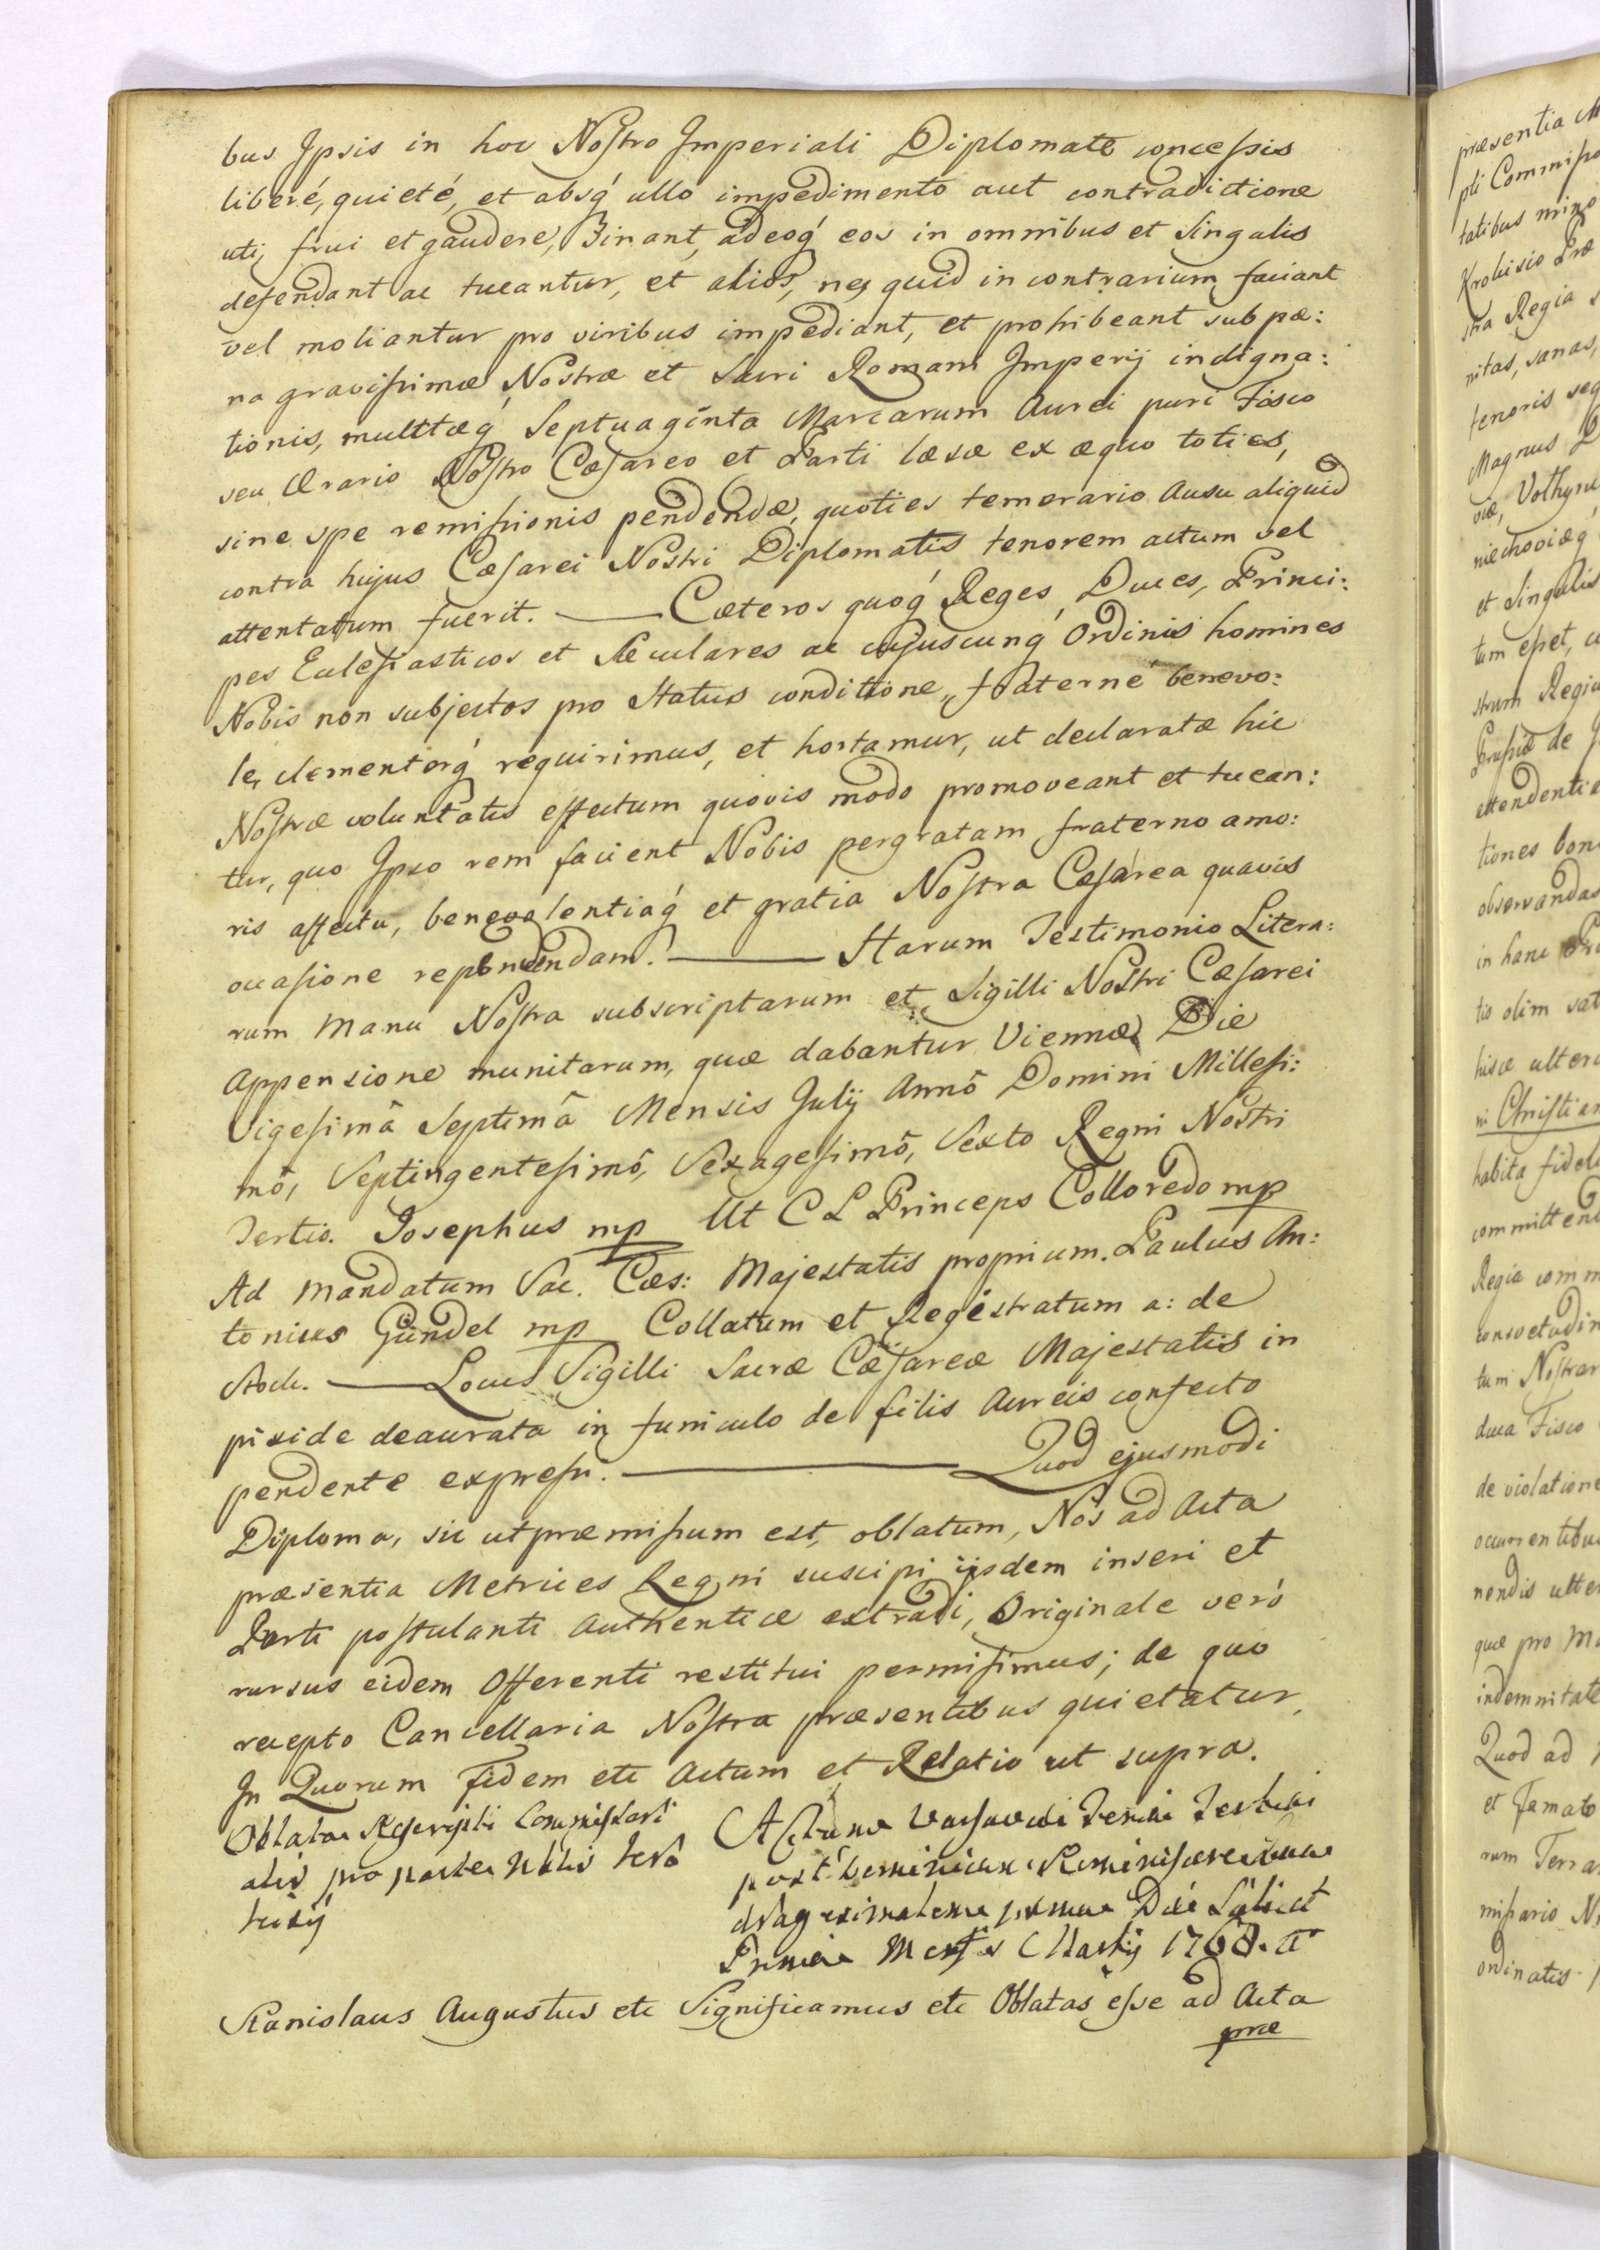 bus Ipsis in hoc Nostro Imperiali Diplomate concessis
liberé, quieté, et absq́ ullo impedimento aut contradictione
uti, frui et gaudere, Sinant, adeoq́ eos in omnibus et Singulis
defendant ac tueantur, et alios, ne quid in contrarium faciant
vel moliantur pro viribus impediant, et prohibeant sub pæ:
na gravissimæ Nostræ et Sacri Romani Imperij indigna:
tionis, mulctæq́ Septuaginta Marcarum Auri puri Fisco
seu Ærario Nostro Cæsareo et Parti læsæ ex æquo toties,
sine spe remissionis pendendæ, quoties temerario Ausu aliquid
contra hujus Cæsarei Nostri Diplomatis tenorem actum vel
attentatum fuerit. — Cæteros quoq́ Reges, Duces, Princi:
pes Eclesiasticos et Sæculares ac cujuscunq́ Ordinis homines
Nobis non subjectos pro Status conditione, fraterné benevo:
le, clementerq́ requirimus, et hortamur, ut declaratæ hic
Nostræ voluntatis effectum quovis modo promoveant et tuean:
tur, quo Ipso rem facient Nobis pergratam, fraterno amo:
ris affectu, benevolentiaq́ et gratia Nostra Cæsárea quavis
occasione rependendam. — Harum Testimonio Litera:
rum Manu Nostra subscriptarum et Sigilli Nostri Cæsarei
Appensione munitarum, quæ dabantur Viennæ Die
Vigesimâ Septimâ Mensis Julij Annô Domini Millesi:
mô, Septingentesimô, Sexagesimô, Sexto Regni Nostri
Tertio. Josephus mp Ut C L Princeps Colloredo mp
Ad Mandatum Sac. Cæs: Majestatis proprium. Paulus An:
tonius Gündel mp Collatum et Registratum a: de
Stock. — Locus Sigilli Sacræ Cæsareæ Majestatis in
pixide deaurata in funiculo de filis Aureis confecto
pendente expressi. — Quod ejusmodi
Diploma, sic ut præmissum est, oblatum, Nos ad Acta
præsentia Metrices Regni suscipi, ijsdem inseri et
Parti postulanti Authenticæ extradi, Originale veró
rursus eidem Offerenti restitui permisimus; de quo
recepto Cancellaria Nostra præsentibus quietatur.
In Quorum Fidem etc Actum et Relatio ut supra.
Oblata Rescripti Commissari
alis pro parte Nblis
Actum Varsaviæ Feria Tertia
post Dominicam Reminiscere
dragesimalem proxima Die Scilicet
Prima Mensis Martij 1768. a
Stanislaus Augustus etc Significamus etc Oblatas esse ad Acta
præ
præsentia
pti Commisso
talibus
stra Regia
nitas, sanas,
tenoris seq
Magnus D
viæ, Volhyn
et Singulis
tum esset, c
strum Regiu
Prussiæ de
attendentes
tiones bon
observandas
in hanc
tis olim sat
hisce ulteri
ni Christian
habita fidel
committend
Regia comm
consvetudin
tum Nostrar
duca Fisco
de violatione
occurrentibus
nendis ulter
quæ pro
indemnitate
Quod ad
et Famato
rum Terrar
missario N
ordinatis